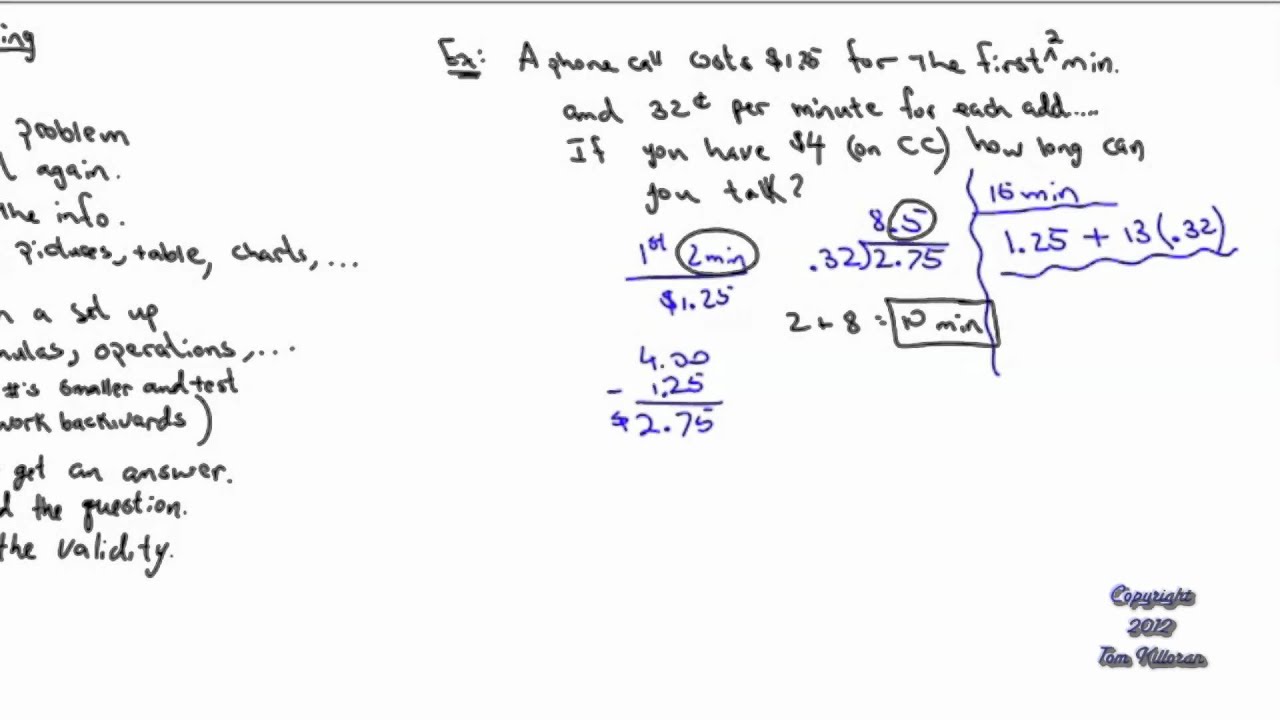 ing
problem
again.
the info.
pictures, table, charts, ...
a set up
mulas, operations, ...
#'s smaller and test
work backwards)
get an answer.
d the question.
the validity.
Ex: A phone call costs $1.25 for the first ^2 min.
and 32¢ per minute for each add....
If you have $4 (on CC) how long can
you talk?
1st 2min
$1.25
4.00
- 1.25
$2.75
8.5
.32)2.75
2 + 8 = 10 min
15 min
1.25 + 13(.32)
Copyright
2012
Tom Killoran